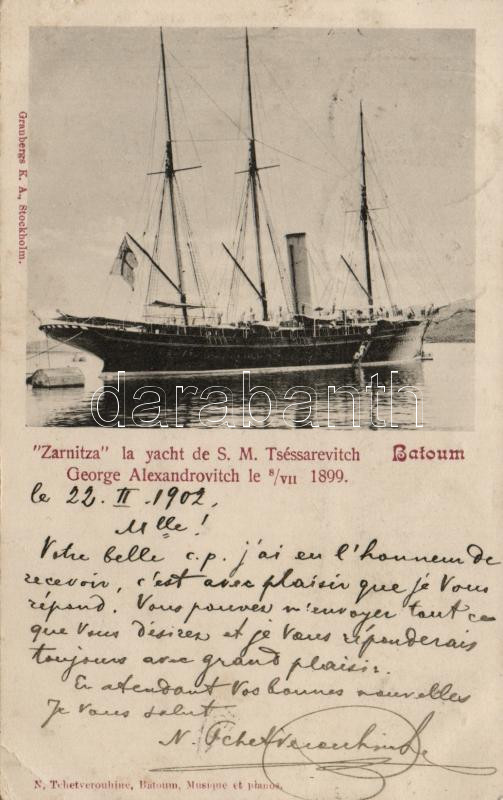 Granbergs K. A., Stockholm.
darabanth
"Zarnitza" la yacht de S. M. Tséssarevitch
George Alexandrovitch le 8/VII 1899.
Batoum
le 22. II. 1902.
Mlle!
Votre belle c.p. j'ai eu l'honneur de
recevoir, c'est avec plaisir que je Vous
répond. Vous pouvez m'envoyer tout ce
que Vous désirez et je Vous réponderais
toujours avec grand plaisir.
En atendant Vos bonnes nouvelles
Je vous salut
N. Tchetverouhine
N, Tchetverouhine, Batoum, Musique et pianos.